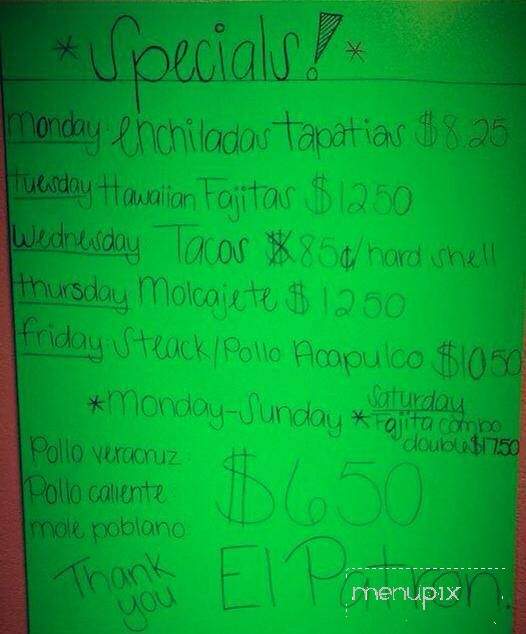 *Specials!*
monday: enchiladas tapatias $8.25
tuesday Hawaiian Fajitas $1250
Wednesday Tacos 85¢/hard shell
thursday Molcajete $1250
friday: Steack/Pollo Acapulco $1050
*Monday-Sunday *Saturday
Fajita combo
double $1750
Pollo veracruz
Pollo caliente
mole poblano
$650
Thank you
El Patron.
menupix